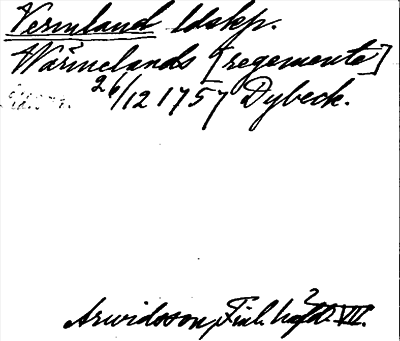 Vermland ldskp.
Wärmelands [regemente]
26/12 1757 Dybeck.
Arwidsson, Finl. VII.